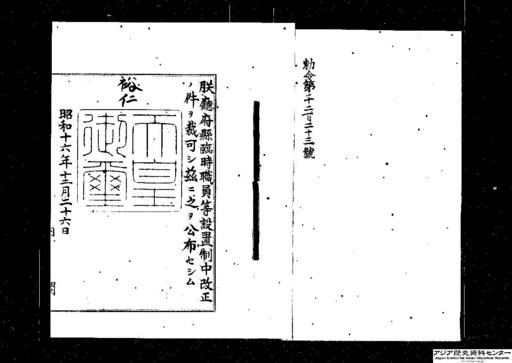 勅令第千二百二十三號
朕廳府縣臨時職員等設置制中改正
ノ件ヲ裁可シ茲ニ之ヲ公布セシム
裕仁
天皇
御璽
昭和十六年十二月二十六日
アジア歴史資料センター
Japan Center for Asian Historical Records